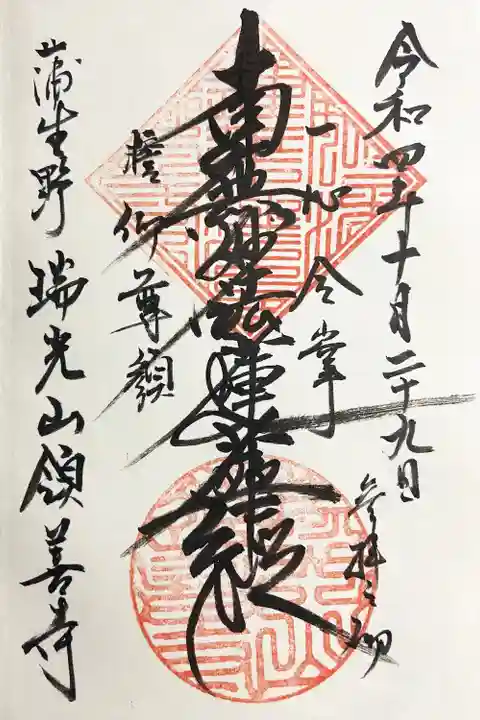 令和四年十月二十九日
参拝之砌
一心合掌
南無妙法蓮華経
瞻仰尊顔
蒲生野 瑞光山 願善寺